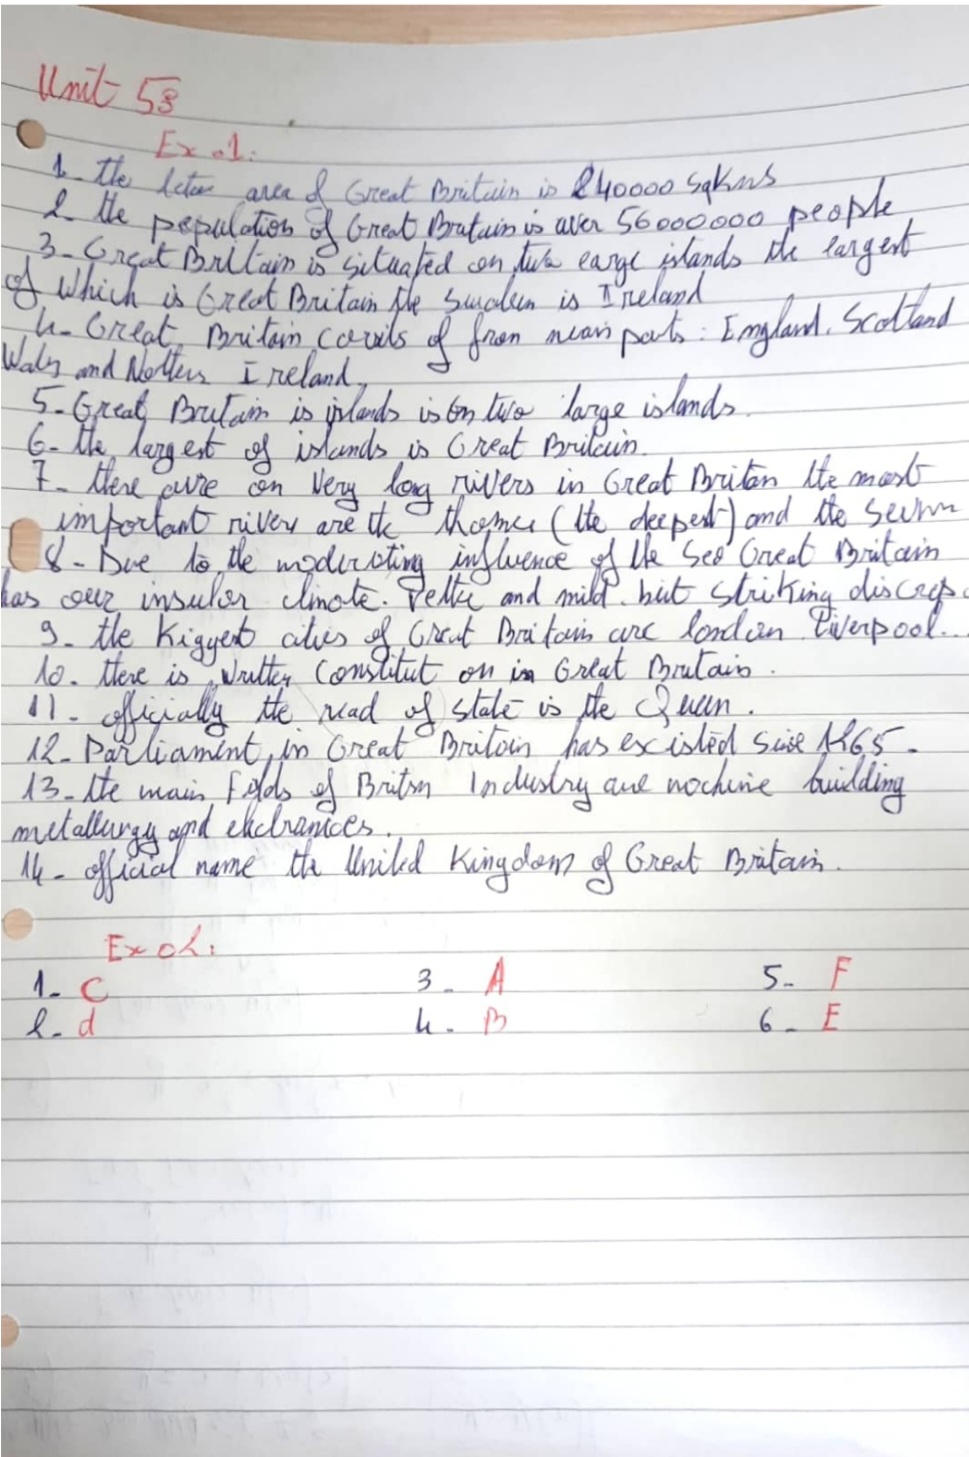 Unit 53
Ex 01:
1- the area of Great Britain is 240000 sqKms
2- the population of Great Britain is over 56000000 people
3- Great Britain is situated on two large islands the largest
of which is Great Britain the is Ireland
4- Great Britain of main parts: England. Scotland
and Ireland
5- Great Britain is islands is on two large islands.
6- the largest of islands is Great Britain.
7- there are on very long rivers in Great Britain the most
important river are the (the deepest) and the
8- Due to the moderating influence of the Sea Great Britain
has insular climate. and mild but striking
9- the cities of Great Britain are london Liverpool...
10- there is written constitut on in Great Britain.
11- officially the of state is the Queen.
12- Parliament in Great Britain has existed 1265.
13- the main of Industry are building
metallurgy and
14- official name the United Kingdom of Great Britain.
Ex 02:
1- C 3- A 5- F
2- d 4- B 6- E